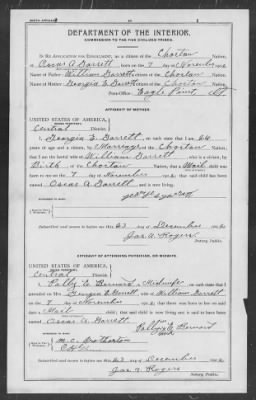 BIRTH AFFIDAVIT.
DEPARTMENT OF THE INTERIOR,
COMMISSION TO THE FIVE CIVILIZED TRIBES.
IN RE APPLICATION FOR ENROLLMENT, as a citizen of the Choctaw Nation,
of Oscar A Garrett born on the 7 day of November
Name of Father: William Garrett a citizen of the Choctaw Nation.
Name of Mother: Georgia E Garrett a citizen of the Choctaw Nation.
Post-Office: Eagle Point
AFFIDAVIT OF MOTHER.
UNITED STATES OF AMERICA,
INDIAN TERRITORY,
Central District.
I, Georgia E Garrett, on oath state that I am
years of age and a citizen, by Marriage of the Choctaw
Nation; that I am the lawful wife of William Garrett who is a citizen, by
Birth of the Choctaw Nation, that a Mail child was
born to me on 7 day of November that said child has been
named Oscar A Garrett and is now living.
Subscribed and sworn to before me this 23 day of December
Jas A Rogers
Notary Public.
AFFIDAVIT OF ATTENDING PHYSICIAN, OR MIDWIFE.
UNITED STATES OF AMERICA,
INDIAN TERRITORY,
Central District.
I, a Midwife on oath state that I
attended on Mrs. Georgia E Garrett wife of William Garrett
on the 7 day of November that there was born to her on said date a
Mail child; that said child is now living and is said to have been
named Oscar A Garrett
Subscribed and sworn to before me this 23 day of December
Jas A Rogers
Notary Public.